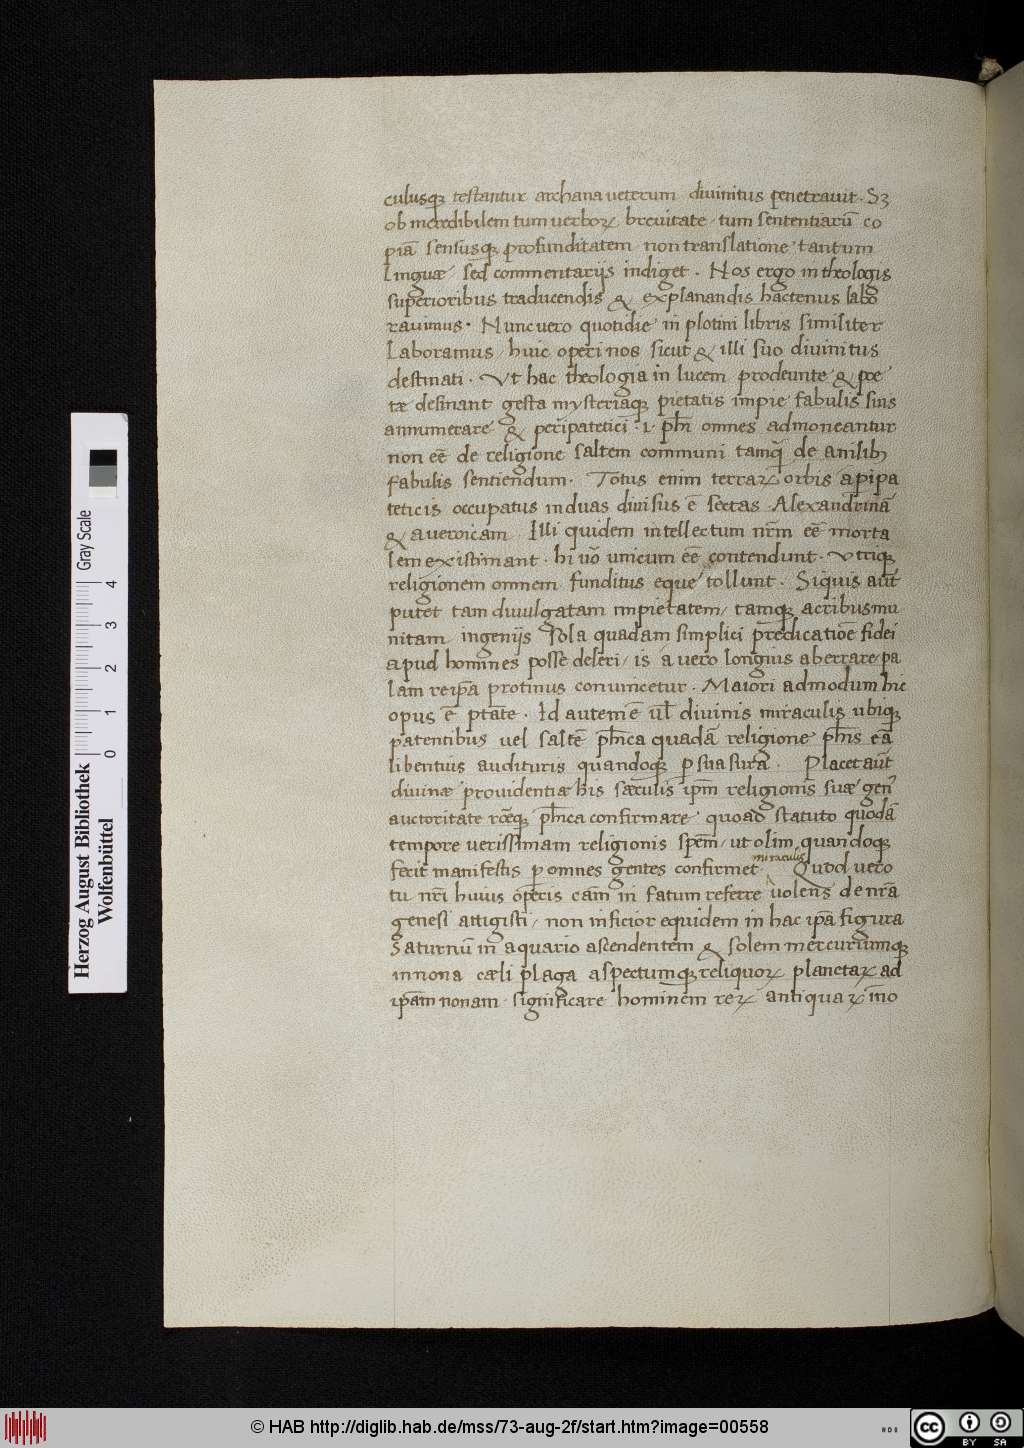 culusqꝫ testantur archana veterum divinitus penetravit. Sꝫ
ob incredibilem tum verboꝝ brevitate, tum sententiarū co
piā sensusqꝫ profunditatem, non translatione tantum
linguæ sed commentarijs indiget. Nos ergo in theologis
superioribus traducendis & explanandis hactenus labo
ravimus. Nunc vero quotidie in plotini libris similiter
Laboramus, huic operi nos sicut & illi suo divinitus
destinati. Vt hac theologia in lucem prodeunte & poe
tæ desinant gesta mysteriaqꝫ pietatis impie fabulis suis
annumerare & peripatetici .i. phī omnes admoneantur
non eē de religione saltem communi tamqꝫ de anilibꝫ
fabulis sentiendum. Totus enim terraꝝ orbis a pipa
teticis occupatus in duas divisus ē sectas Alexandrinā
& averoicam. Illi quidem intellectum nr̄m eē morta
lem existimant. hi vō unicum eē contendunt. Vtriqꝫ
religionem omnem funditus eque tollunt. Siquis aūt
putet tam divulgatam impietatem, tamqꝫ acribus mu
nitam ingenijs sola quadam simplici predicatiōe fidei
apud homines posse deleri, is a vero longius aberrare, pa
lam reipā protinus convincetur. Maiori admodum hic
opus ē ptāte. Id autem ē vl̄ divinis miraculis ubiqꝫ
patentibus vel saltē phīca quadā religione phīs eā
libentius audituris quandoqꝫ ꝑsuasura. Placet aūt
divinæ providentiæ his sæculis ipm̄ religionis suæ gen9
auctoritate rōeqꝫ phīca confirmare quoad statuto quodā
tempore verissimam religionis spēm, ut olim quandoqꝫ
fecit manifestis ꝑ omnes gentes confirmet miraculis. Quod vero
tu nr̄i huius operis cām in fatum referre volens de nr̄a
genesi attigisti, non inficior equidem in hac ipā figura
Saturnū in aquario ascendentem & solem mercuriumqꝫ
in nona cæli plaga aspectumqꝫ reliquoꝝ planetaꝝ ad
ipām nonam, significare hominem reꝝ antiquaꝝ īno
Herzog August Bibliothek
Wolfenbüttel
Gray Scale
0 1 2 3 4
© HAB http://diglib.hab.de/mss/73-aug-2f/start.htm?image=00558
cc BY SA